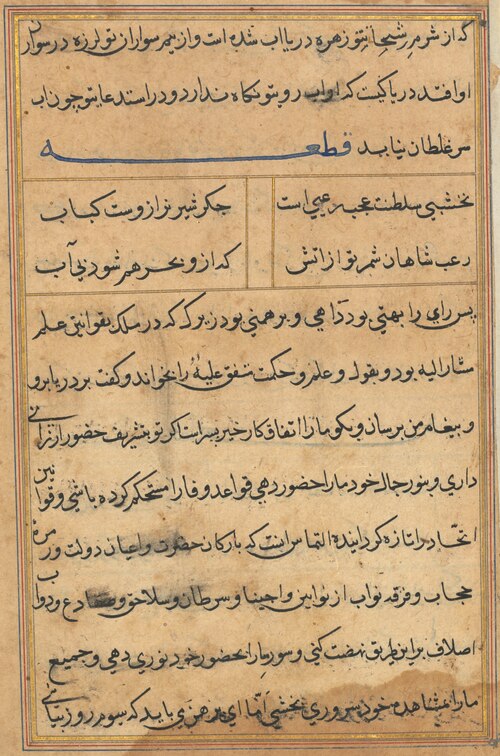 که از شرم شجاعتو زهره دریا اب شده است و از بیم سواران تو لرزه در سوار
او افتد دریا کیست که او اب رو بتو نکاه ندارد و در استدعا بتو چون اب
سر غلطان نیاید قطعه
نخشبی سلطنت عجب رعبی است جکر شیر نر ازوست کباب
رعب شاهان شمر تو از اتش که ازو بحر هم شود بی آب
پس رای را بهتی بود دامی و برهمنی بود زیرک که در ملک بقوانین علم
مشار الیه بود و بقول و علم و حکمت متفق علیه او را بخواند و کفت بر دریا برو
و پیغام من برسان و بکو مارا اتفاق کار خیر پسر است اکر تو بتشریف حضور ارزانی
داری و بنور جمال خود مارا حضور دهی قواعد وفا را مستحکم کرده باشی و قوانین
اتحاد را تازه کردانیده التماس اینست که با ارکان حضرت و اعیان دولت و زمرۀ
حجاب و فرقه نواب از و سرطان و سلاحق و
اصلاف برین طریق نهضت کنی و سور مارا بحضور خود نوری دهی و جمیع
مارا بمشاهده خود سروری بخشی اما ای برهمن می باید که سوم روز بیایی